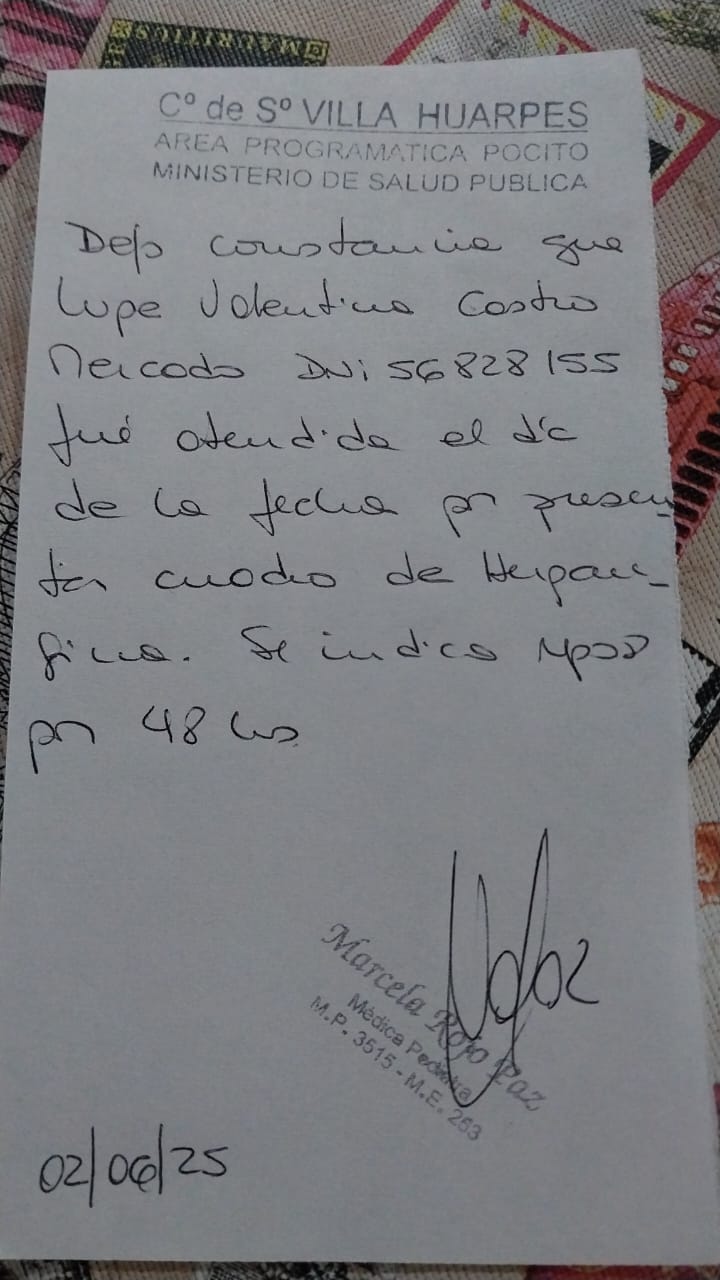 MAURITIUS
Cº de Sº VILLA HUARPES
AREA PROGRAMATICA POCITO
MINISTERIO DE SALUD PUBLICA
Dejo constancia que
Lupe Valentina Castro
Mercado DNi 56828155
fué atendida el día
de la fecha por presen-
tar cuadro de Herpan-
gina. Se indica reposo
por 48 hs.
Marcela Rojo Paz
Médica Pediatra
M.P. 3515 - M.E. 263
02/06/25